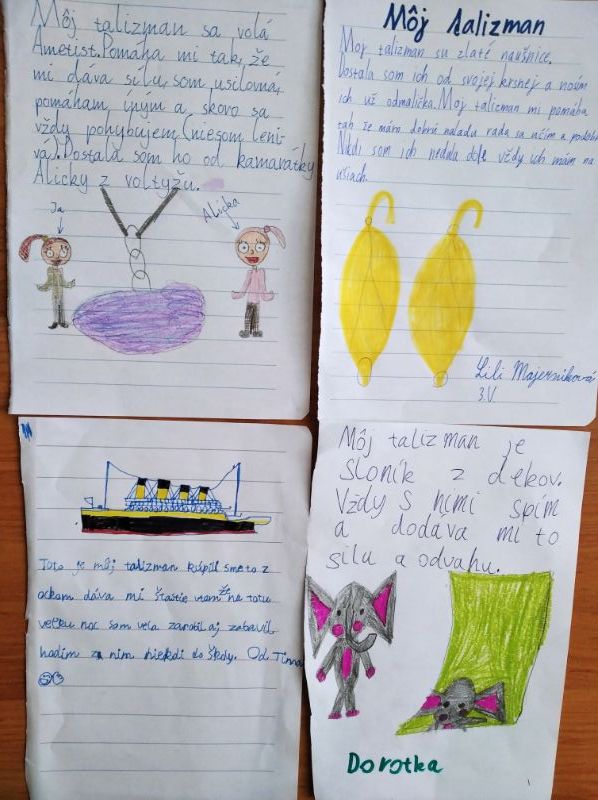 Môj talizman sa volá
Ametist. Pomáha mi tak, že
mi dáva silu, som usilovná,
pomáham iným a skoro sa
vždy pohybujem (niesom leni-
vá). Dostala som ho od kamarátky
Alicky z voltyžu.
Ja
Alička
Môj talizman
Moj talizman su zlaté naušnice.
Dostala som ich od svojej krsnej a nosím
ich už odmalička. Moj talizman mi pomáha
tak že mám dobrú naladu rada sa učím a
Nikdi som ich nedala dole vždy ich mám na
ušiach.
Lili Majerniková
3.V
Toto je môj talizman kúpil sme to z
ockom dáva mi štastie na totu
veľku noc som vela zarobil aj zabavil
hodim z nim niekdi do škôy. Od Timna
Môj talizman je
sloník z dekov.
Vždy s nimi spím
a dodáva mi to
silu a odvahu.
Dorotka